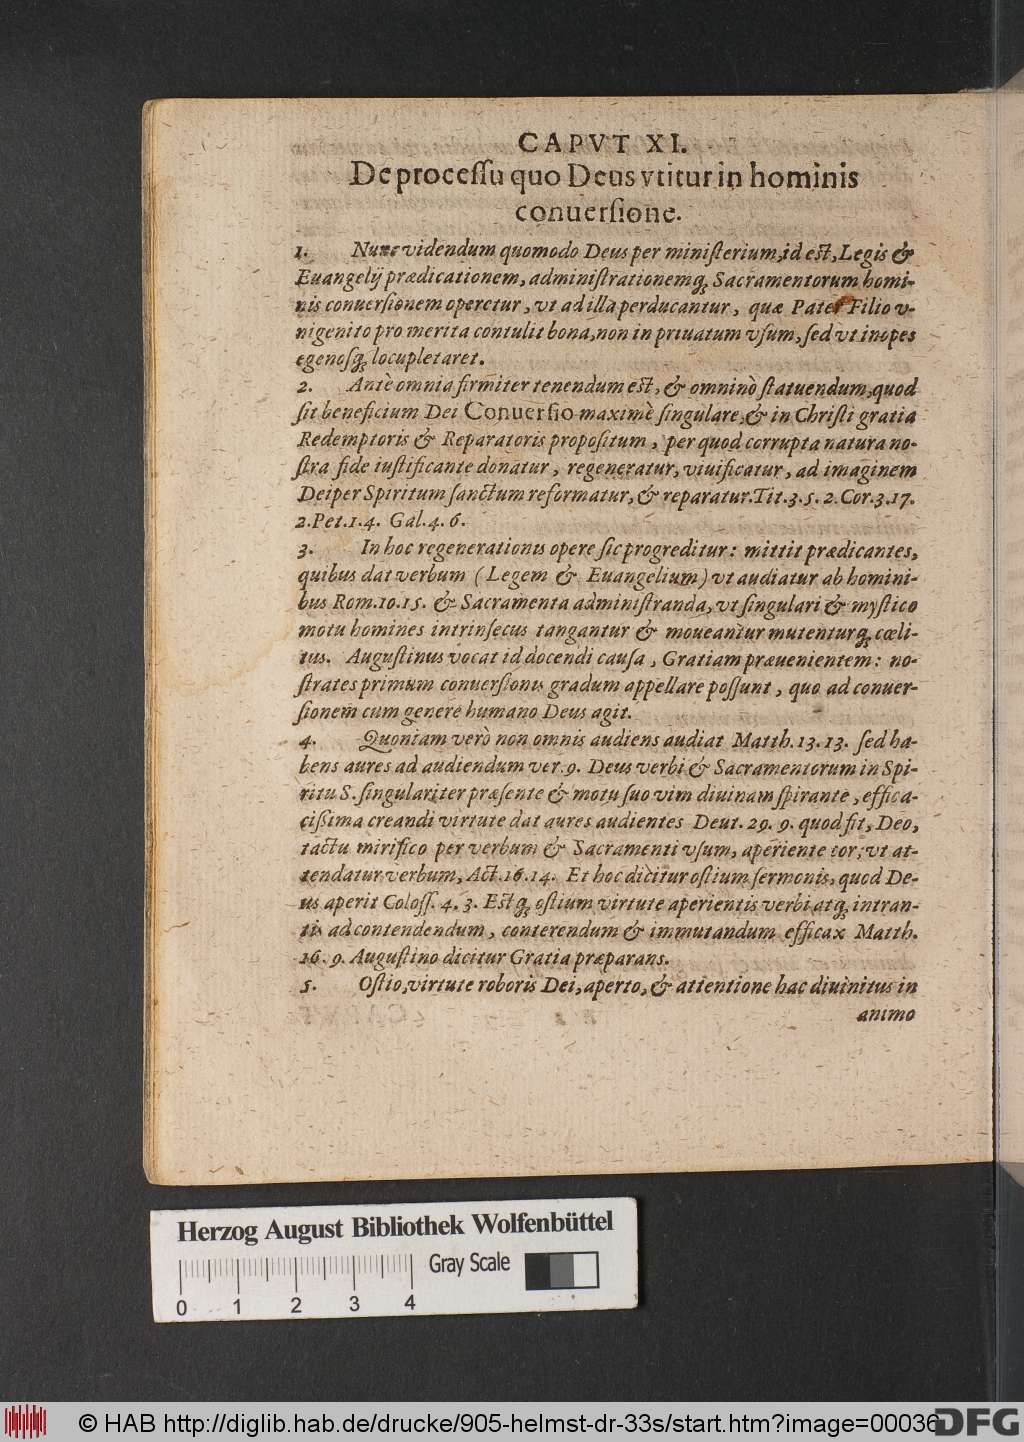 CAPVT XI.
De processu quo Deus vtitur in hominis
conuersione.
1. Nunc videndum quomodo Deus per ministerium, id est, Legis &
Euangelij prædicationem, administrationemq; Sacramentorum homi-
nis conuersionem operetur, vt ad illa perducantur, quæ Pater Filio v-
nigenito pro merita contulit bona, non in priuatum vsum, sed vt inopes
egenosq; locupletaret.
2. Antè omnia firmiter tenendum est, & omninò statuendum, quod
sit beneficium Dei Conuersio maximè singulare, & in Christi gratia
Redemptoris & Reparatoris propositum, per quod corrupta natura no-
stra fide iustificante donatur, regeneratur, viuificatur, ad imaginem
Dei per Spiritum sanctum reformatur, & reparatur. Tit. 3. 5. 2. Cor. 3. 17.
2. Pet. 1. 4. Gal. 4. 6.
3. In hoc regenerationis opere sic progreditur: mittit prædicantes,
quibus dat verbum (Legem & Euangelium) vt audiatur ab homini-
bus Rom. 10. 15. & Sacramenta administranda, vt singulari & mystico
motu homines intrinsecus tangantur & moueantur mutenturq; cœli-
tus. Augustinus vocat id docendi causa, Gratiam præuenientem: no-
strates primum conuersionis gradum appellare possunt, quo ad conuer-
sionem cum genere humano Deus agit.
4. Quoniam verò non omnis audiens audiat Matth. 13. 13. sed ha-
bens aures ad audiendum ver. 9. Deus verbi & Sacramentorum in Spi-
ritu S. singulariter præsente & motu suo vim diuinam spirante, effica-
cissima creandi virtute dat aures audientes Deut. 29. 9. quod fit, Deo,
tactu mirifico per verbum & Sacramenti vsum, aperiente cor, vt at-
tendatur verbum, Act. 16. 14. Et hoc dicitur ostium sermonis, quod De-
us aperit Coloss. 4. 3. Estq; ostium virtute aperientis verbi atq; intran-
tis ad contendendum, conterendum & immutandum efficax Matth.
16. 9. Augustino dicitur Gratia præparans.
5. Ostio, virtute roboris Dei, aperto, & attentione hac diuinitus in
animo
Herzog August Bibliothek Wolfenbüttel
Gray Scale
0 1 2 3 4
© HAB http://diglib.hab.de/drucke/905-helmst-dr-33s/start.htm?image=00036
DFG